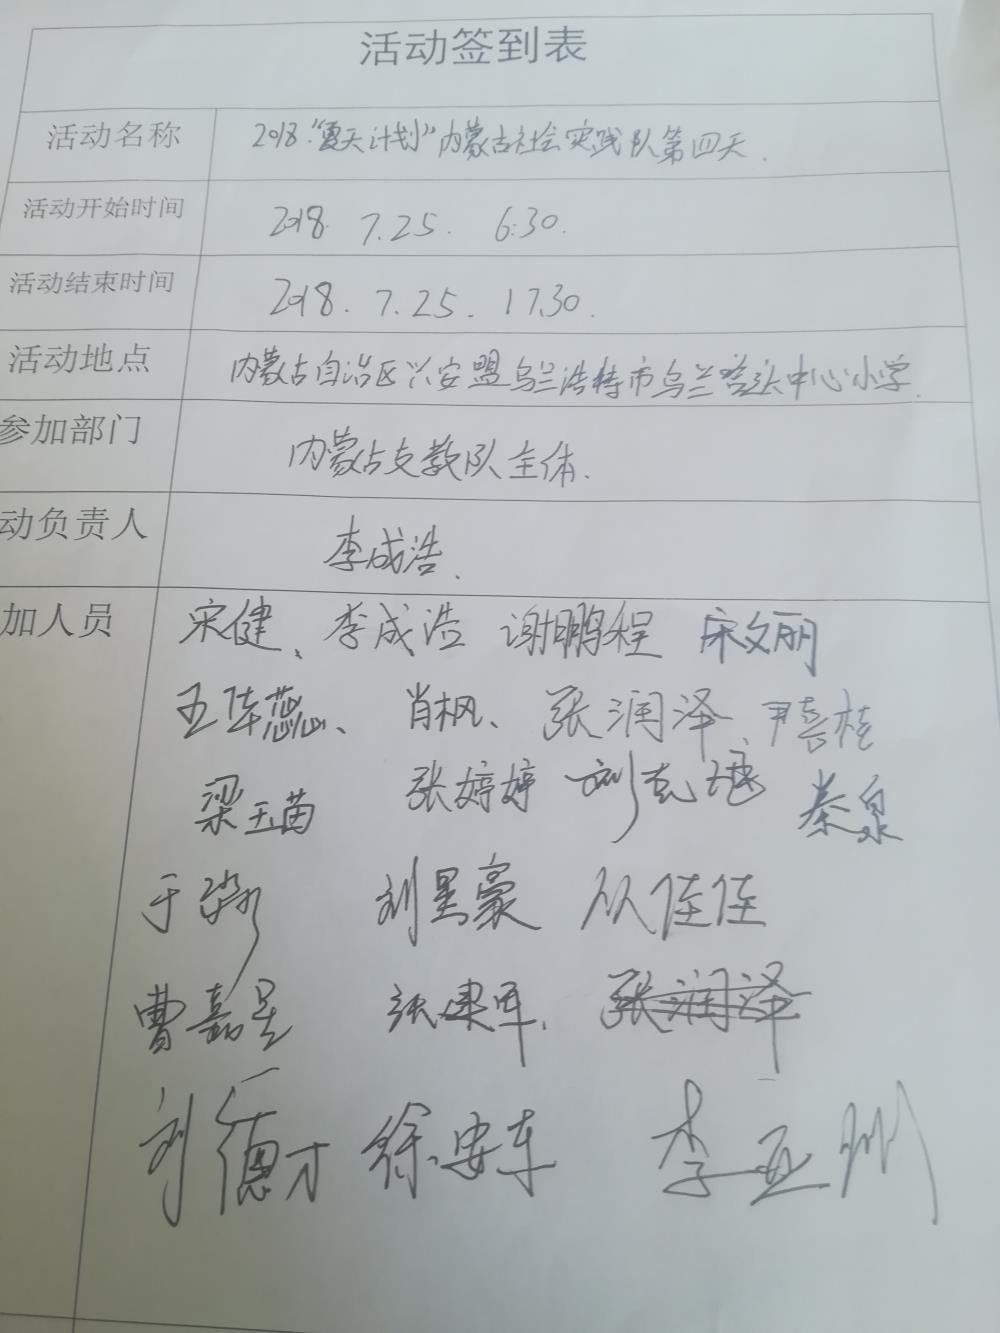 活动签到表
活动名称 2018"夏天计划"内蒙古社会实践队第四天.
活动开始时间 2018. 7.25. 6:30.
活动结束时间 2018. 7.25. 17.30.
活动地点 内蒙古自治区兴安盟乌兰浩特市乌兰哈达中心小学.
参加部门 内蒙古支教队主体.
动负责人 李成浩.
加人员 宋健、李成浩 谢鹏程 宋文丽
王蕊、肖枫、张润泽、尹喜桂
梁玉苗 张婷婷 刘克 秦泉
于 刘昱豪 从佳佳
曹嘉星 张建军. 张润泽
刘德才 徐安东 李亚州